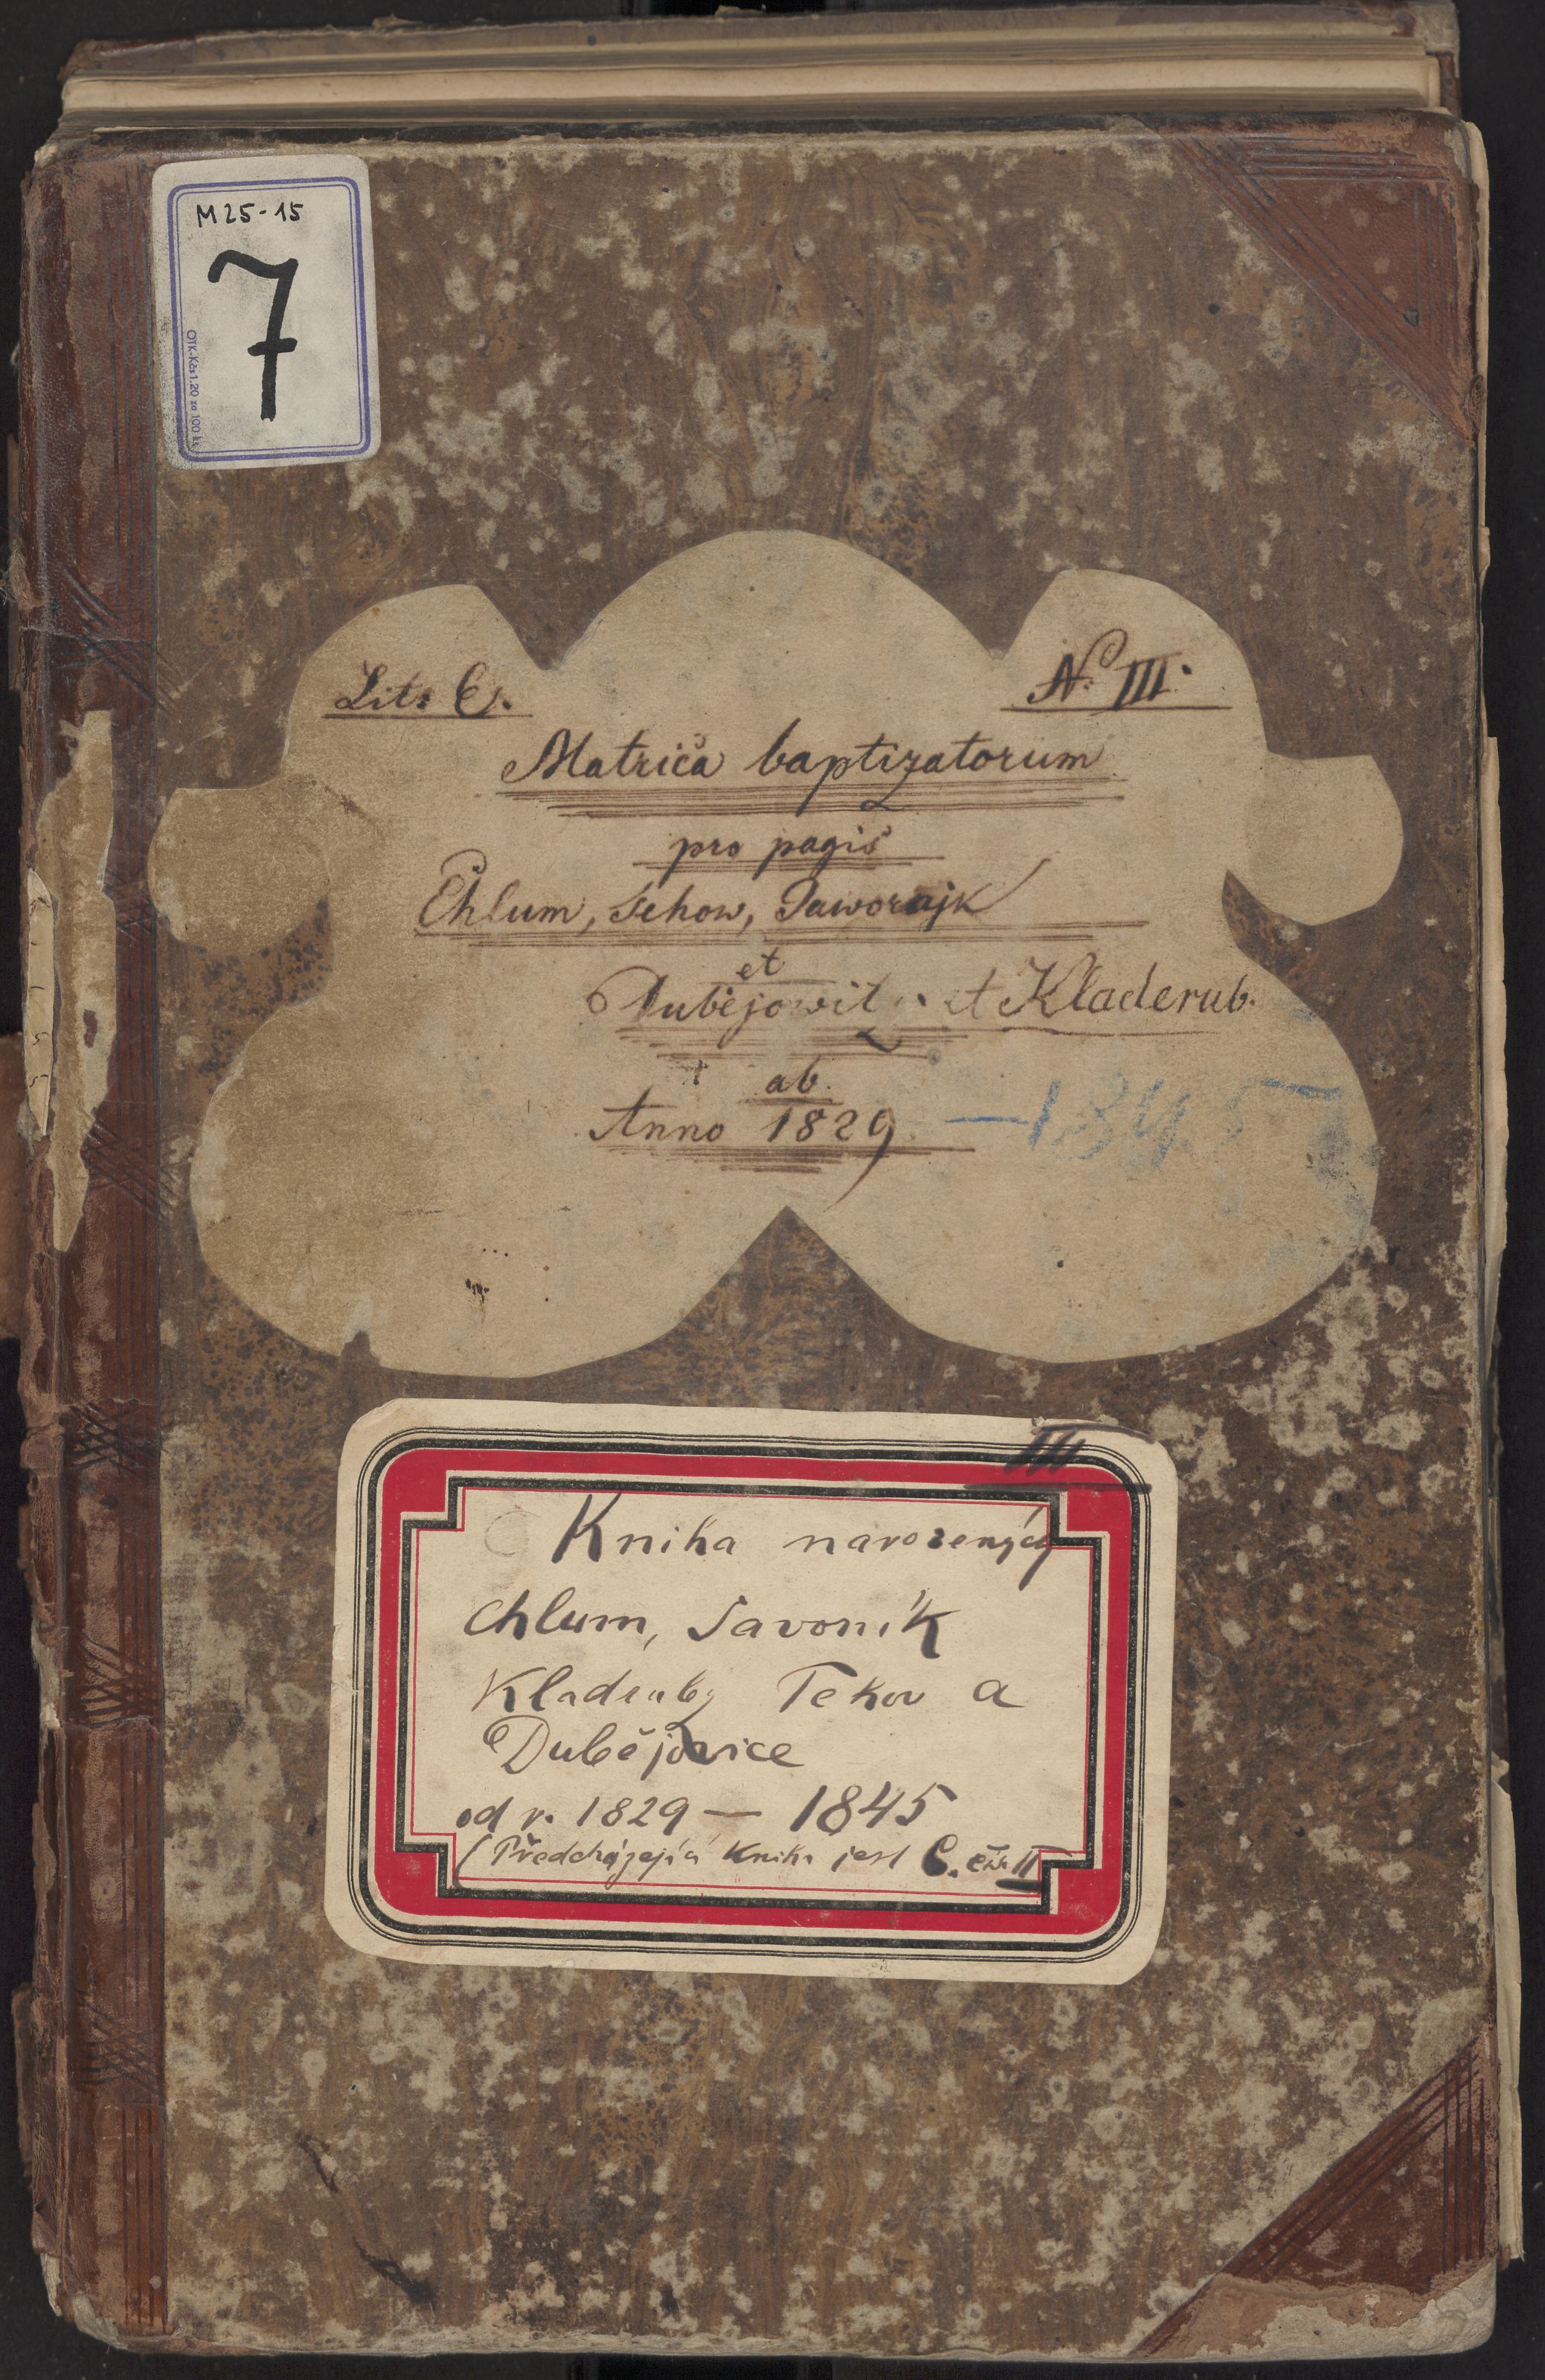 M 25-15
7
OTK-Kčs 1.20 za 100 ks
Litt C.
No III.
Matrica baptizatorum
pro pagis
Chlum, Tehow, Jaworzjk
et
Dubějowitz et Kladerub.
ab
Anno 1829 — 1845
III
Kniha narozených
Chlum, Javorník
Kladruby Tehov a
Dubějovice
od r. 1829 — 1845
(Předcházející kniha jest C. čís. II